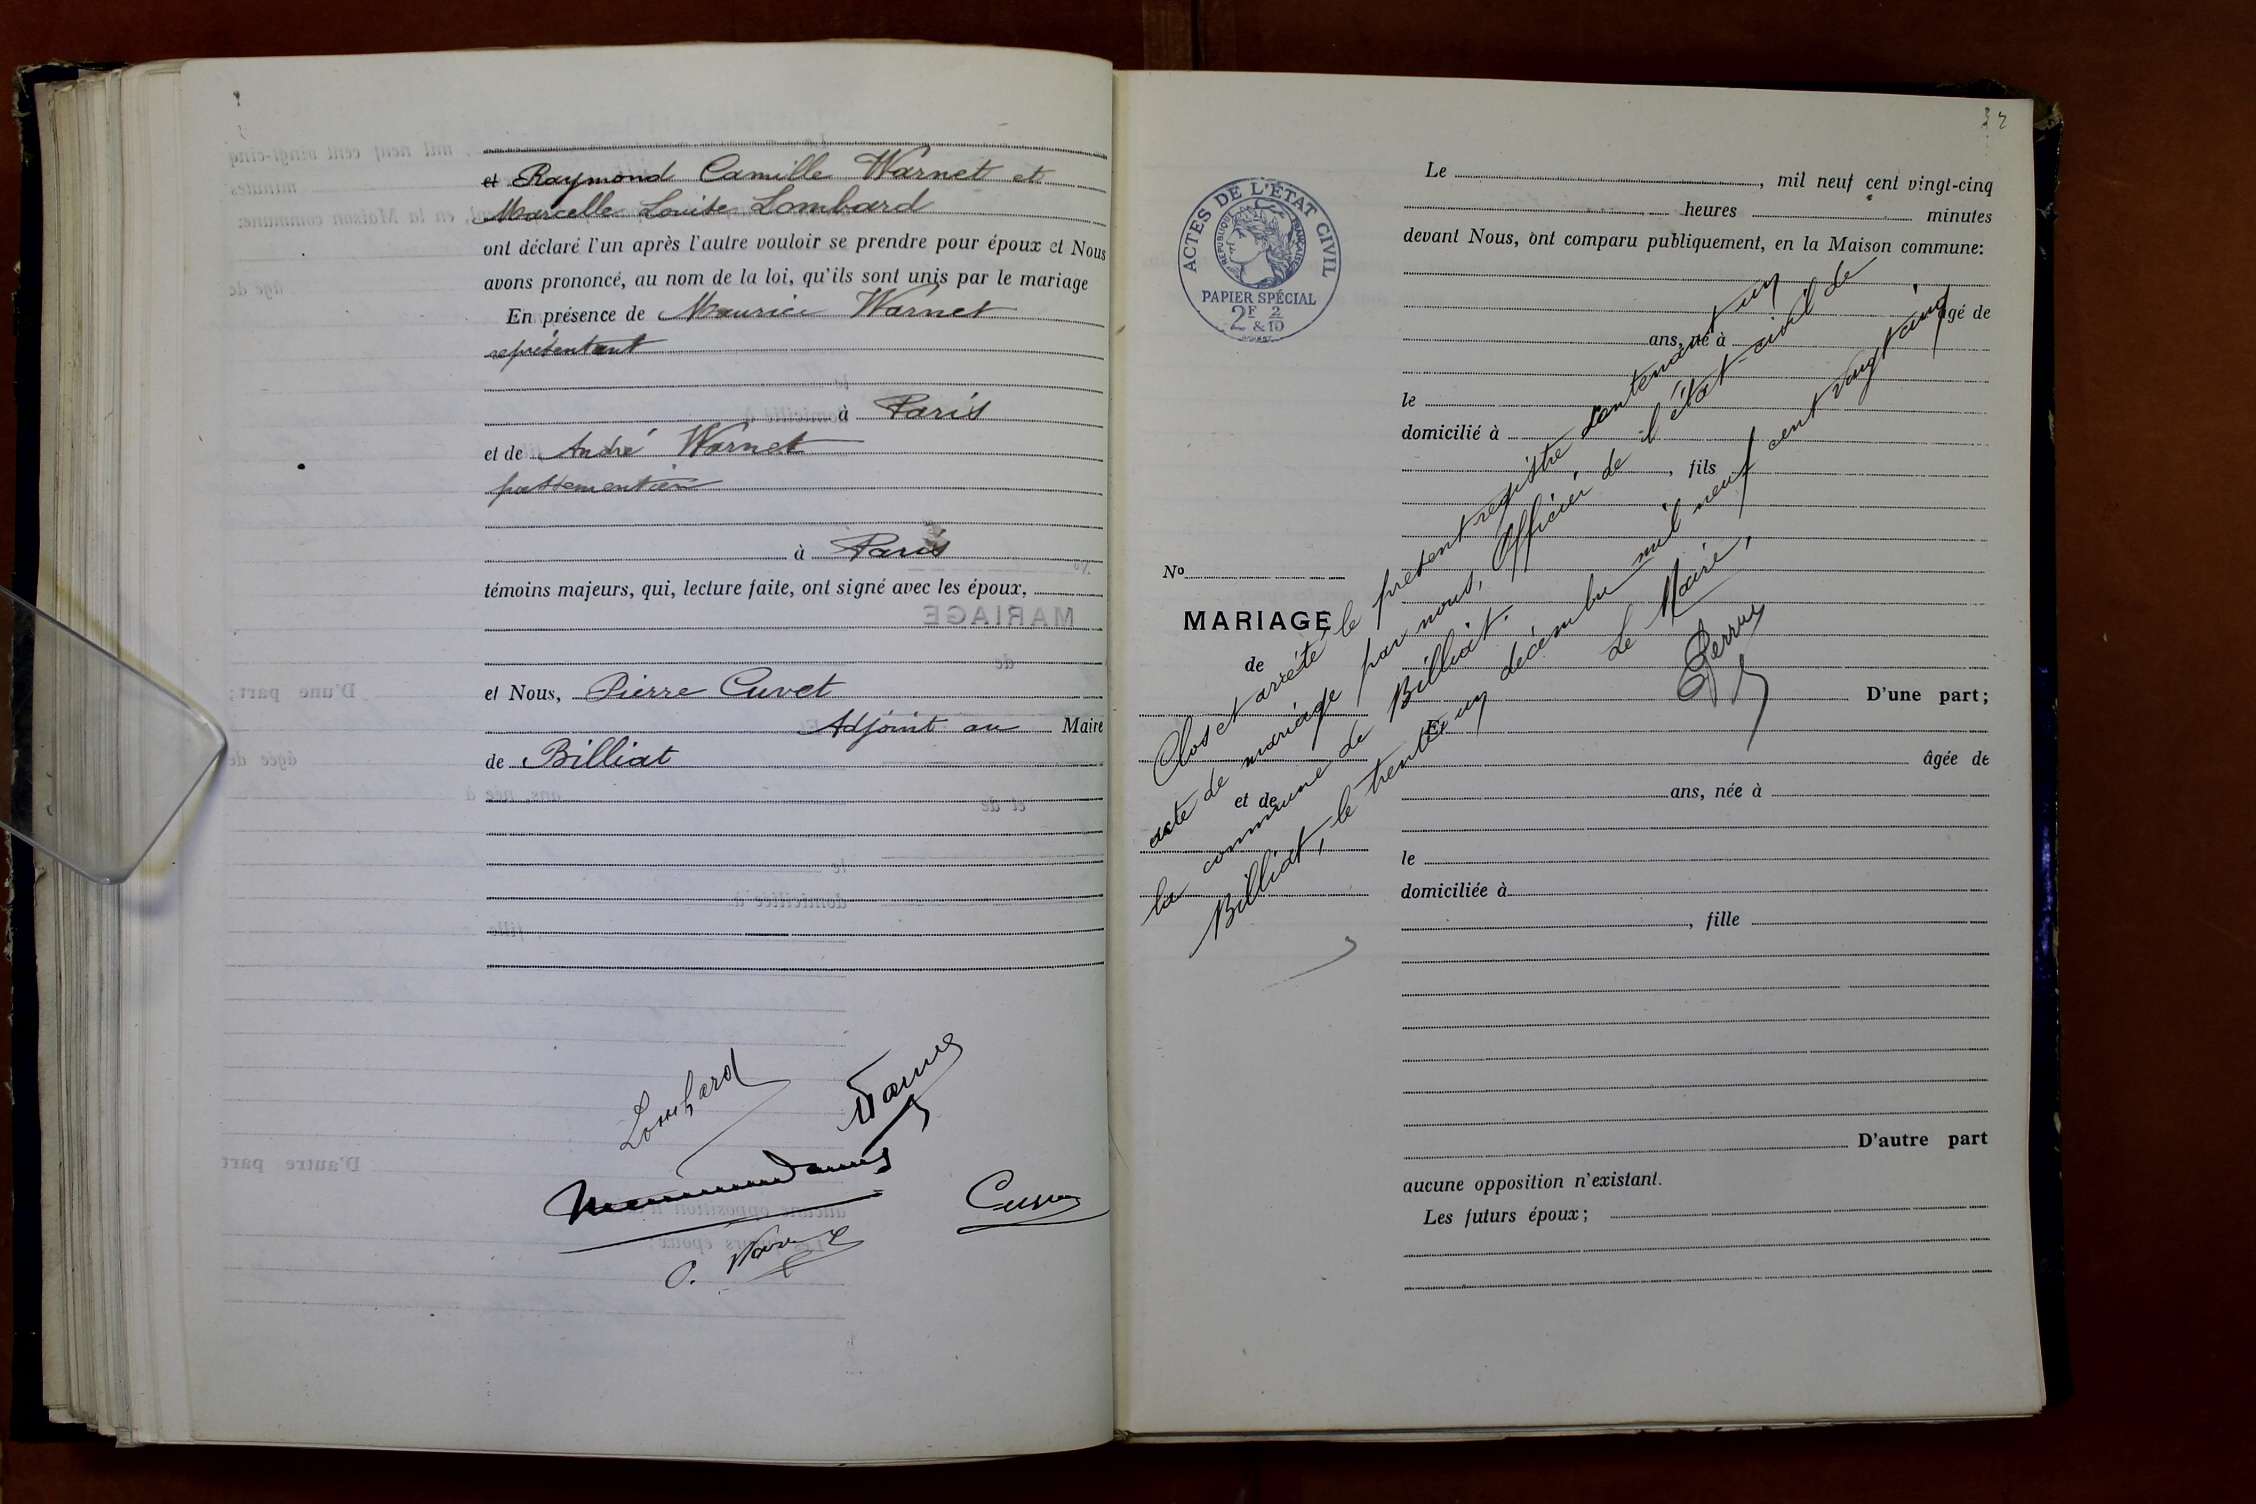 et Raymond Camille Warnet et
Marcelle Louise Lombard
ont déclaré l'un après l'autre vouloir se prendre pour époux et Nous
avons prononcé, au nom de la loi, qu'ils sont unis par le mariage
En présence de Maurice Warnet
représentant
à Paris
et de André Warnet
passementier
à Paris
témoins majeurs, qui, lecture faite, ont signé avec les époux,
et Nous, Pierre Cuvet
Adjoint au Maire
de Billiat
Lombard
32
ACTES DE L'ÉTAT CIVIL
RÉPUBLIQUE FRANÇAISE
PAPIER SPÉCIAL
2F 2
& 10
No
MARIAGE
de
et de
Le , mil neuf cent vingt-cinq
heures minutes
devant Nous, ont comparu publiquement, en la Maison commune:
âgé de
ans, né à
le
domicilié à
, fils
D'une part;
Et
âgée de
ans, née à
le
domiciliée à
, fille
D'autre part
aucune opposition n'existant.
Les futurs époux;
Clos et arrêté le présent registre contenant un
acte de mariage par nous, Officier de l'état-civil de
la commune de Billiat.
Billiat, le trente un décembre mil neuf cent vingt cinq
Le Maire,